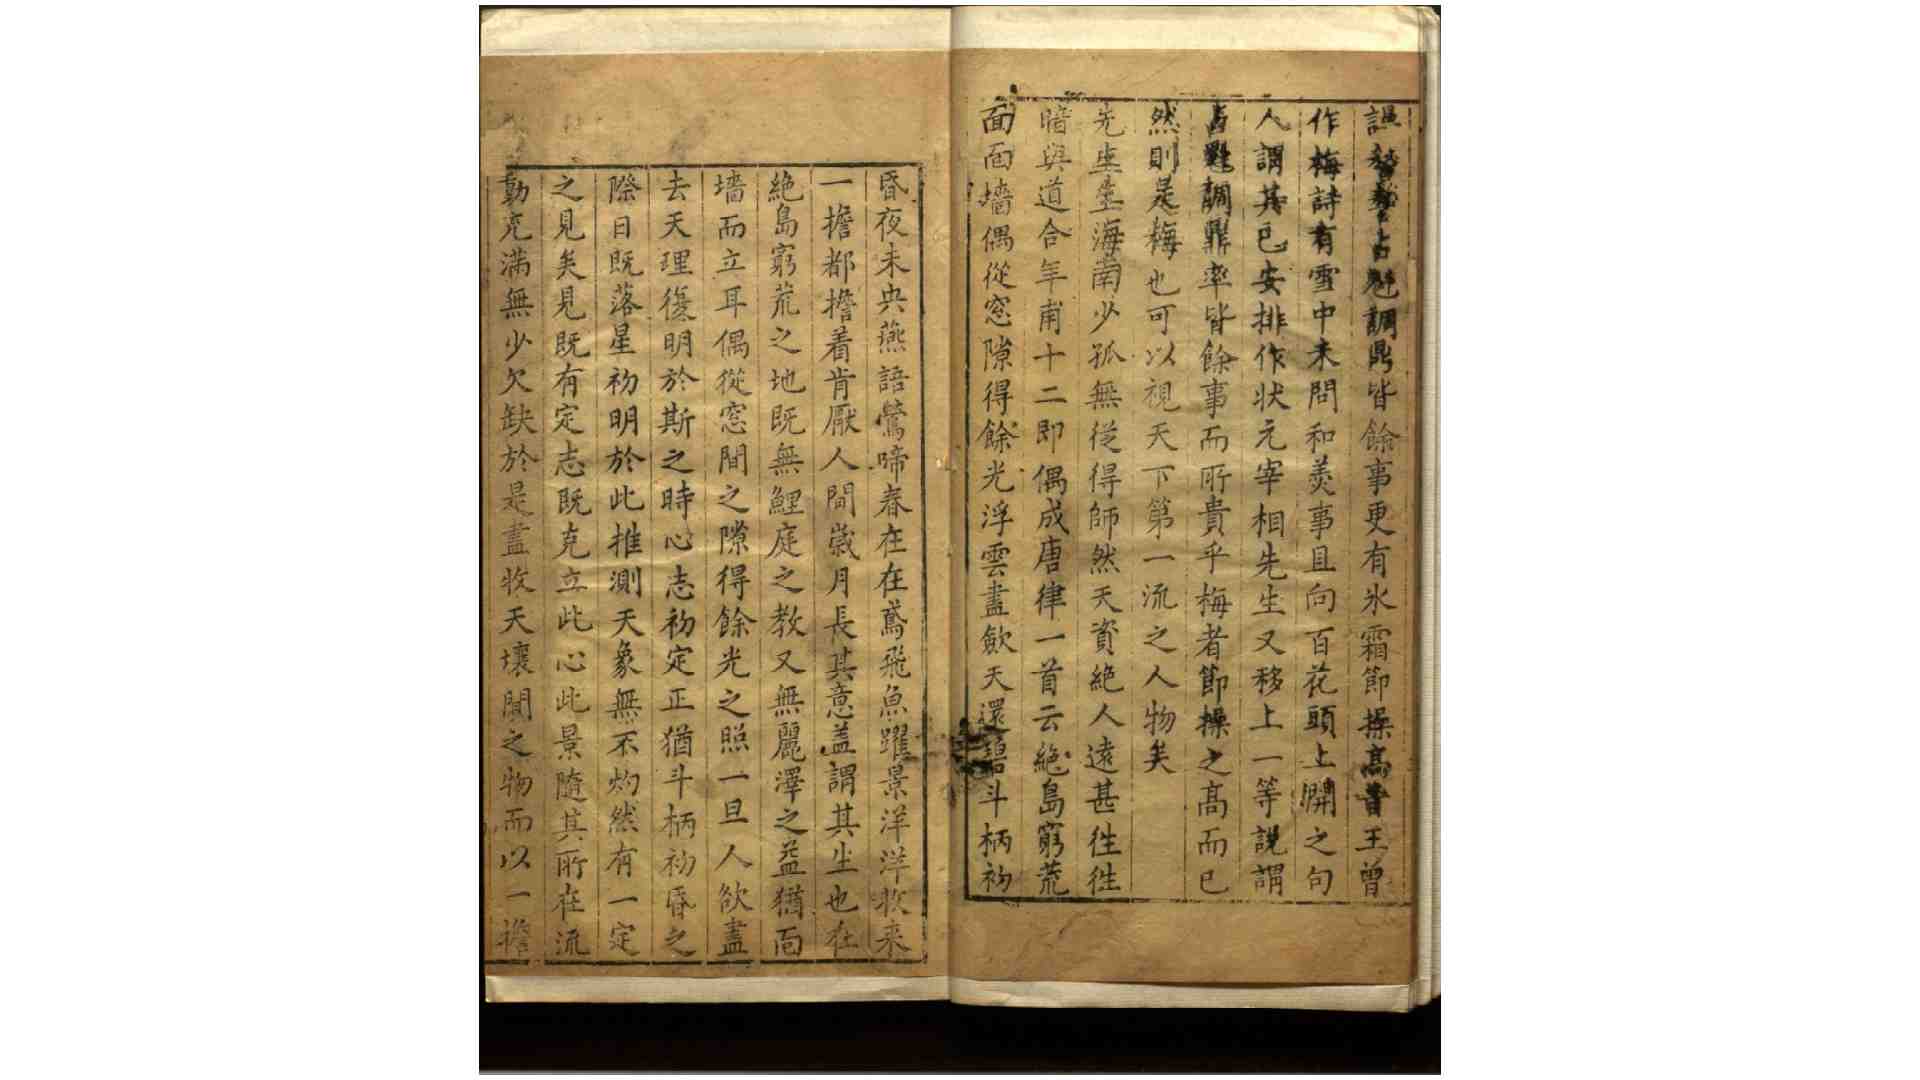 謾 占魁調鼎皆餘事更有氷霜節操高昔王曾
作梅詩有雪中未問和羮事且向百花頭上開之句
人謂其已安排作状元宰相先生又移上一等說謂
占魁調鼎率皆餘事而所貴乎梅者節操之高而已
然則是梅也可以視天下第一流之人物矣
先生生海南少孤無從得師然天資絶人遠甚徃徃
暗與道合年甫十二即偶成唐律一首云絶島窮荒
面面墻偶從窓隙得餘光浮雲盡歛天還碧斗柄初
昏夜未央燕語鶯啼春在在鳶飛魚躍景洋洋收来
一擔都擔着肯厭人間嵗月長其意盖謂其生也在
絶島窮荒之地既無鯉庭之教又無麗澤之益猶面
墻而立耳偶從窓間之隙得餘光之照一旦人欲盡
去天理復明於斯之時心志初定正猶斗柄初昏之
際日既落星初明於此推測天象無不灼然有一定
之見矣見既有定志既克立此心此景隨其所在流
動充滿無少欠缺於是盡收天壤間之物而以一擔